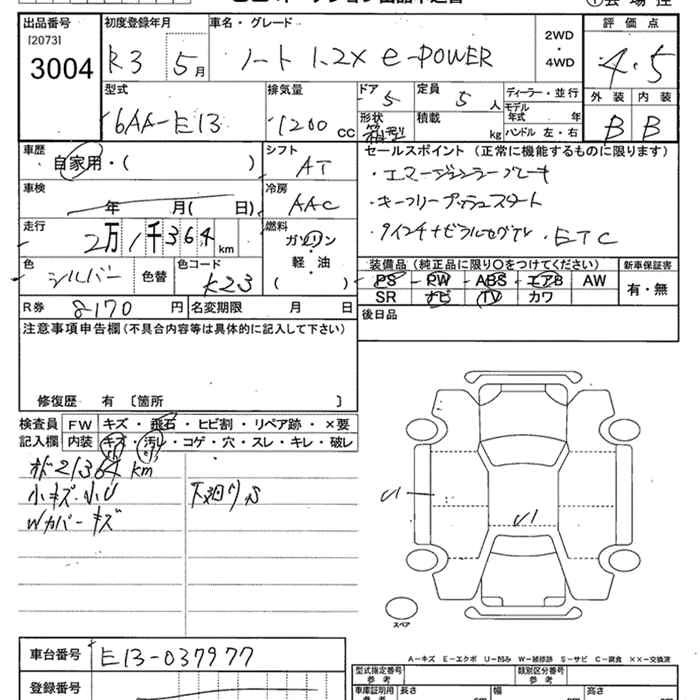 出品番号 初度登録年月 車名・グレード 評価点
[2073]
3004 R3 5月 ノート 1.2X e-POWER 2WD・4WD 4.5
型式 排気量 ドア 定員 ディーラー・並行 外装 内装
6AA-E13 1200cc 5 5人 モデル年式 年 B B
形状 積載 kg ハンドル 左・右
車歴 自家用・( ) シフト AT セールスポイント (正常に機能するものに限ります)
・エマージェンシーブレーキ
車検 年 月( 日) 冷房 AAC ・キーフリープッシュスタート
走行 2万1千364km 燃料 ガソリン・軽・油 ( ) ・9インチナビフルセグTV ・ETC
色 シルバー 色替 色コード K23 装備品 (純正品に限り○をつけてください) 新車保証書
PS PW ABS エアB AW 有・無
SR ナビ TV カワ
R券 8170円 名変期限 月 日 後日品
注意事項申告欄(不具合内容等は具体的に記入して下さい)
修復歴 有 [箇所 ]
検査員 FW キズ・飛石・ヒビ割・リペア跡・×要
記入欄 内装 キズ・汚レ・コゲ・穴・スレ・キレ・破レ
21364km
小キズ・小U 下廻りS
Wカバーキズ
U1
U1
スペア
A-キズ E-エクボ U-凹み W-補修跡 S-サビ C-腐食 ××-交換済
車台番号 E13-037977 型式指定番号 参考 類別区分番号 参考
登録番号 車庫証明用 参考 長さ 幅 高さ